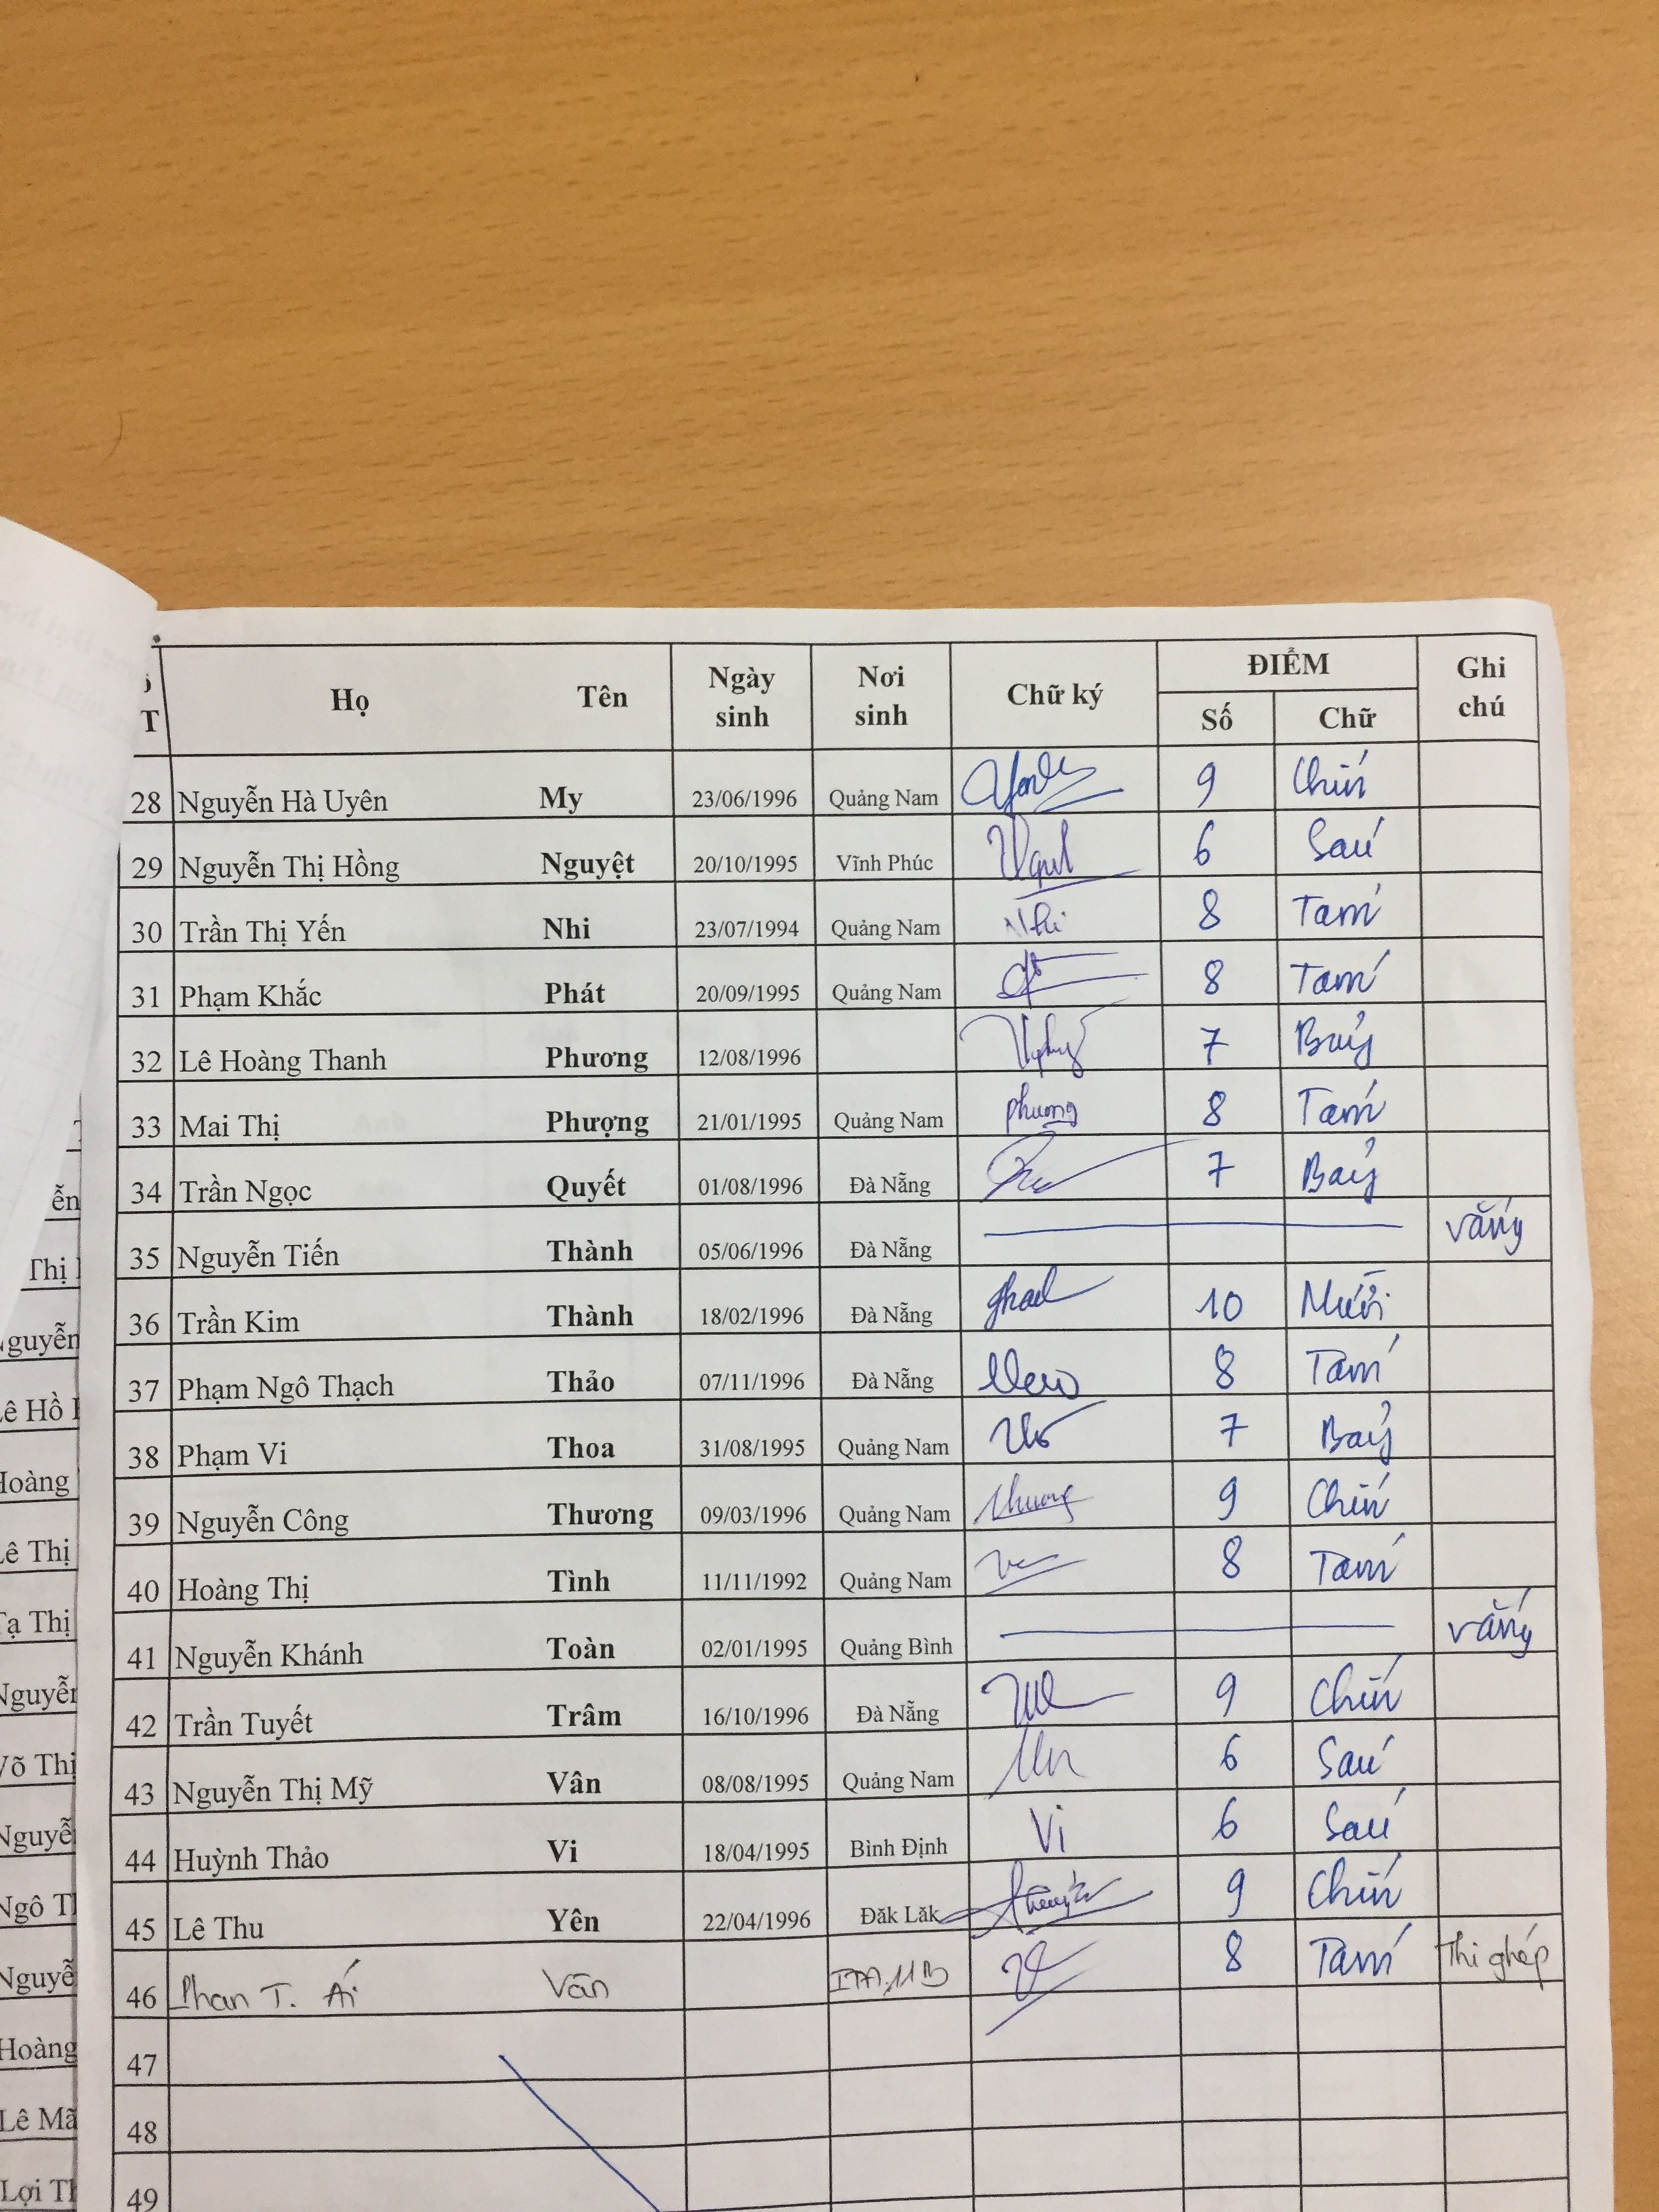 T Họ Tên Ngày sinh Nơi sinh Chữ ký ĐIỂM Ghi chú
Số Chữ
28 Nguyễn Hà Uyên My 23/06/1996 Quảng Nam 9 Chín
29 Nguyễn Thị Hồng Nguyệt 20/10/1995 Vĩnh Phúc 6 Sáu
30 Trần Thị Yến Nhi 23/07/1994 Quảng Nam Nhi 8 Tám
31 Phạm Khắc Phát 20/09/1995 Quảng Nam 8 Tám
32 Lê Hoàng Thanh Phương 12/08/1996 7 Bảy
33 Mai Thị Phượng 21/01/1995 Quảng Nam phượng 8 Tám
34 Trần Ngọc Quyết 01/08/1996 Đà Nẵng 7 Bảy
35 Nguyễn Tiến Thành 05/06/1996 Đà Nẵng vắng
36 Trần Kim Thành 18/02/1996 Đà Nẵng 10 Mười
37 Phạm Ngô Thạch Thảo 07/11/1996 Đà Nẵng 8 Tám
38 Phạm Vi Thoa 31/08/1995 Quảng Nam 7 Bảy
39 Nguyễn Công Thương 09/03/1996 Quảng Nam 9 Chín
40 Hoàng Thị Tình 11/11/1992 Quảng Nam 8 Tám
41 Nguyễn Khánh Toàn 02/01/1995 Quảng Bình vắng
42 Trần Tuyết Trâm 16/10/1996 Đà Nẵng 9 Chín
43 Nguyễn Thị Mỹ Vân 08/08/1995 Quảng Nam 6 Sáu
44 Huỳnh Thảo Vi 18/04/1995 Bình Định Vi 6 Sáu
45 Lê Thu Yên 22/04/1996 Đăk Lăk 9 Chín
46 Phan T. Ái Vân 8 Tám Thi ghép
47
48
49
ễn
Thị
Nguyễn
Lê Hồ
Hoàng
Lê Thị
Tạ Thị
Nguyễn
Võ Thị
Nguyễ
Ngô T
Nguyễ
Hoàng
Lê Mã
Lợi Th